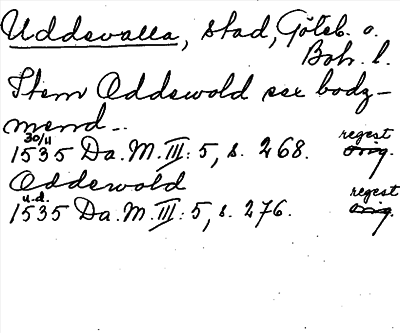 Uddevalla, stad, Göteb. o.
Boh. l.
Item Oddewold sex bodz-
mend--
30/11
1535 Da. M. III: 5, s. 268. regest orig.
Oddewold
u.d.
1535 Da. M. III: 5, s. 276. regest orig.